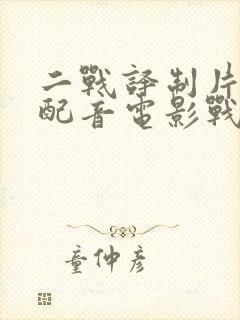 二戰譯制片
配音電影戰
童仲彥